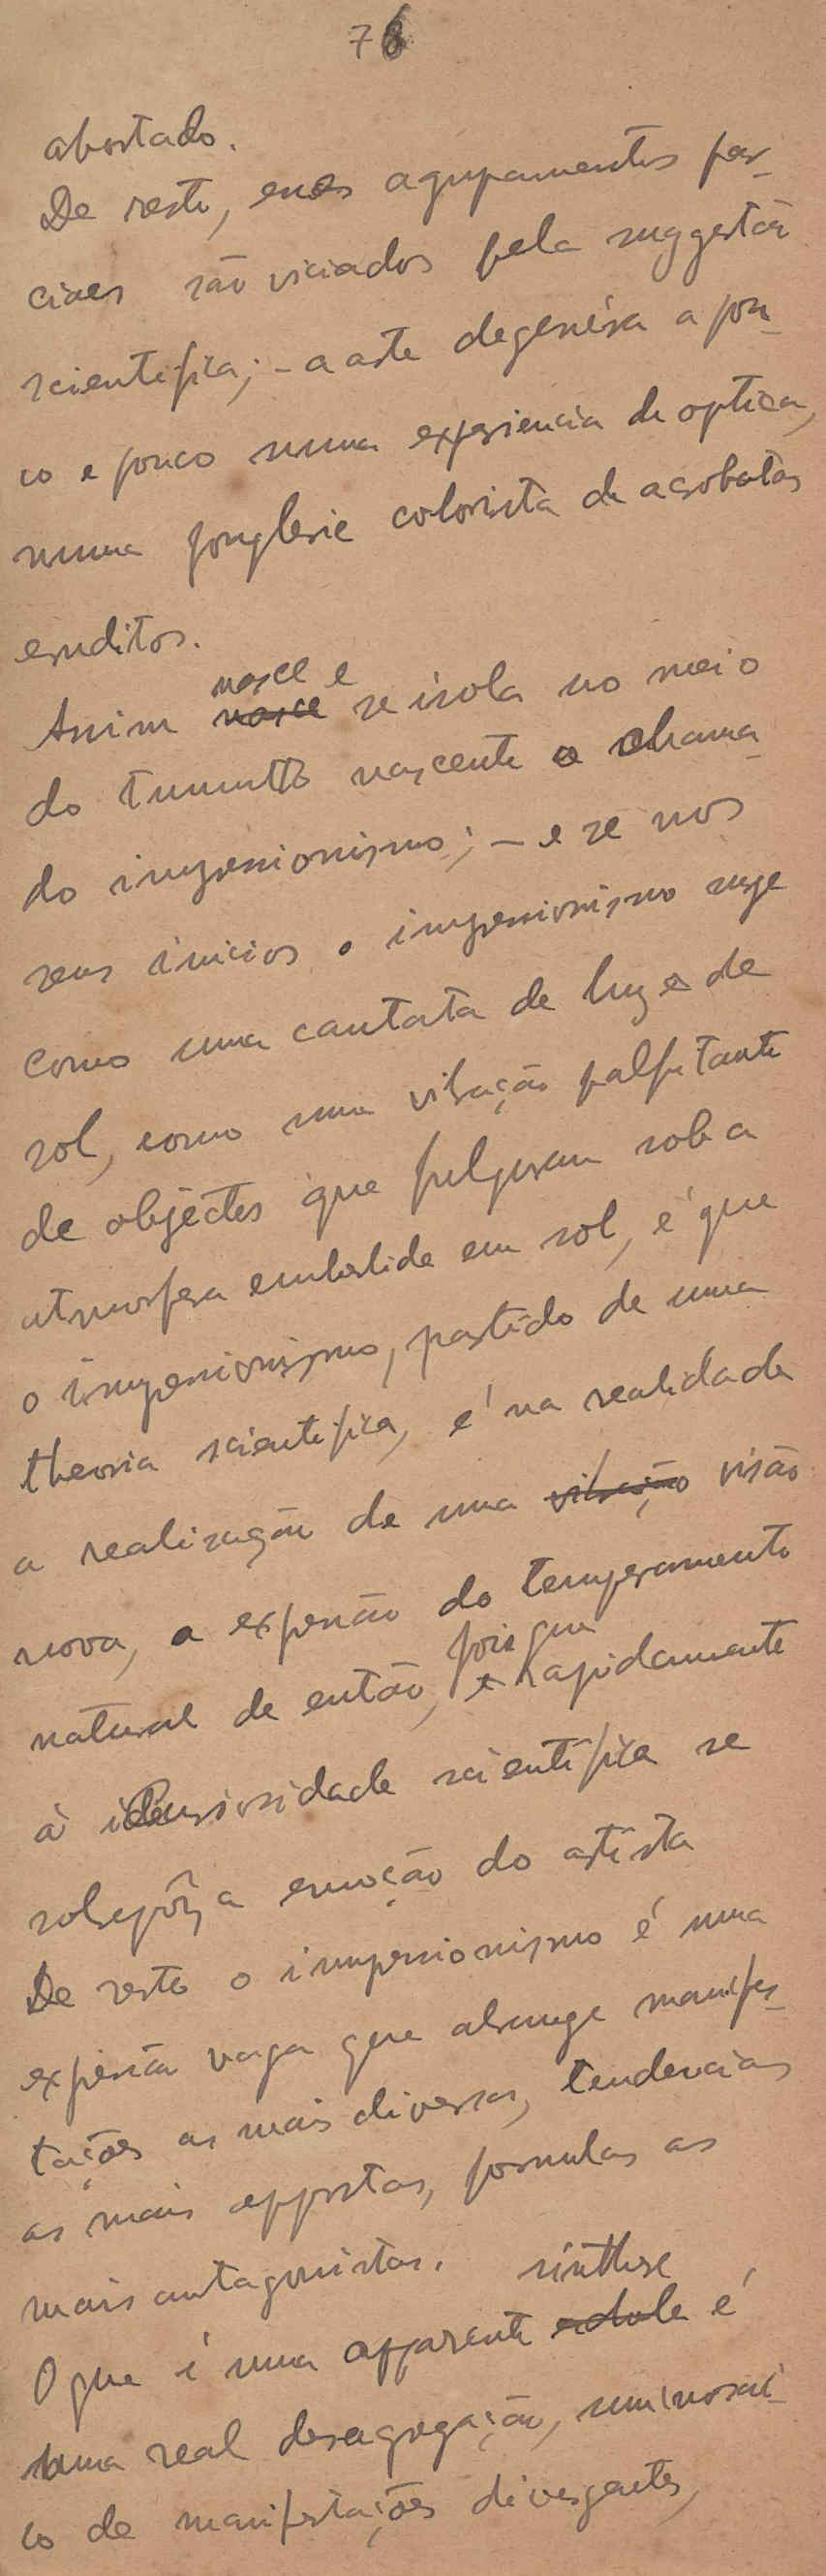 76
abortado.
De resto, esses agrupamentos par-
ciaes são viciados pela suggestão
scientifica; – a arte degenéra a pou-
co e pouco numa experiencia de optica,
numa jonglerie colorista de acrobatas
eruditos.
nasce e
Assim nasce se isola no meio
do tumulto nascente o chama-
do impressionismo; – e se nos
seus inicios o impressionismo surge
como uma cantata de luz e de
sol, como uma vibração palpitante
de objéctos que fulguram sob a
atmosfera embebida em sol, é que
o impressionismo, partido de uma
theoria scientifica, é na realidade
a realisação de uma vibração visão
nova, a expressão do temperamento
pois que
natural de então, e rapidamente
à curiosidade scientifica se
sobrepõz a emoção do artista
De resto o impressionismo é uma
expressão vaga que abrange manifes-
tações as mais diversas, tendencias
as mais oppostas, formulas as
mais antagonistas.
sinthese
O que é uma apparente é
uma real desagregação, um mosai-
co de manifestações divergentes,